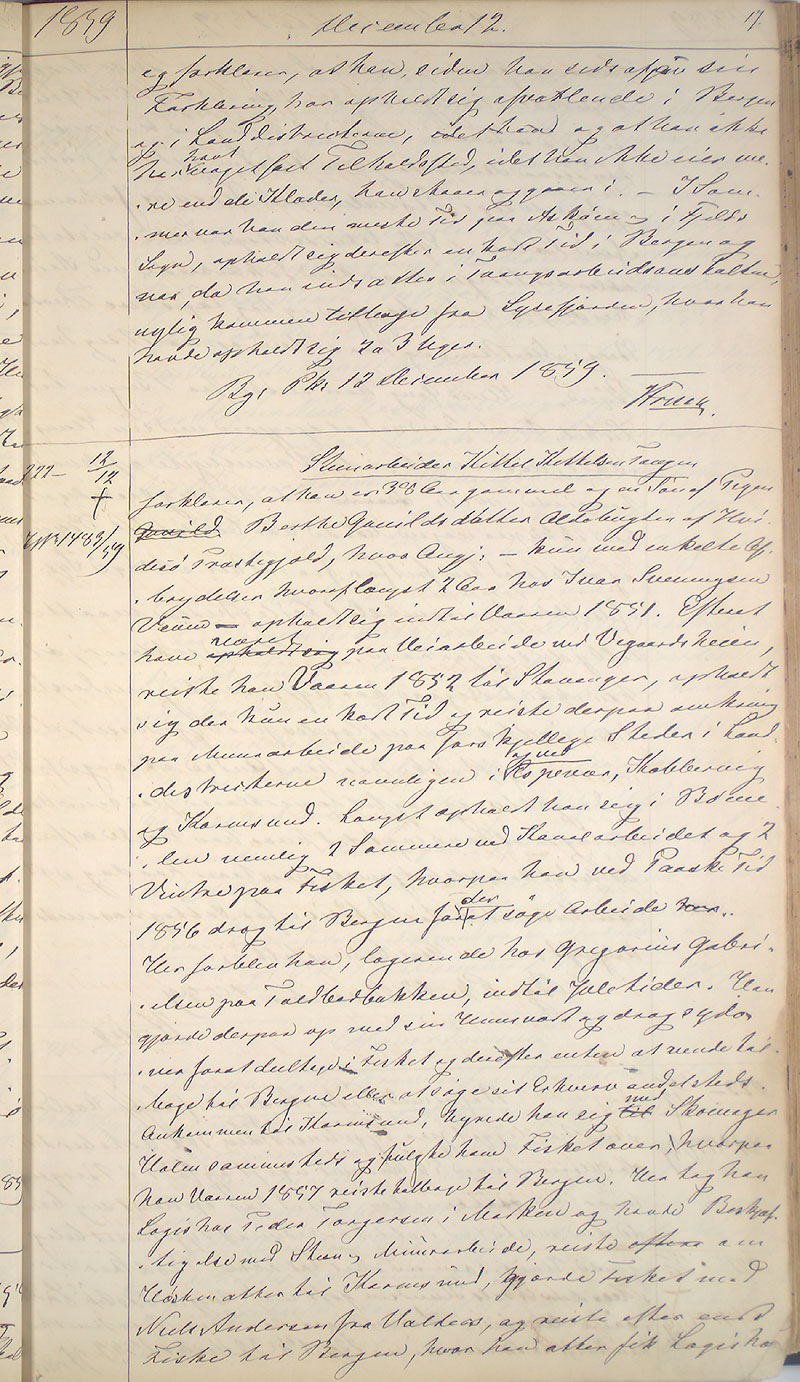 1859
December 12.
17.
og forklarer, at han, siden han sidst afgav sin
Forklaring har opholdt sig afvexlende i Bergen
og i Landdistricterne, idet han og at han ikke
har havt noget fast Tilholdssted, idet han ikke eier me-
re end de Klæder, han staaer og gaaer i. – I Som-
mer var han den meste Tid paa Askøen og i Fjelds
Sogn, opholdt sig derefter en kort Tid i Bergen og
var, da han indsattes i Tvangsarbeidsanstalten,
nylig kommen tilbage fra Lysefjorden, hvor han
havde opholdt sig 2 a 3 Uger.
Bg. Pk. 12 December 1859.
222 – 12/12
Steenarbeider Kittel Kittelsen Tangen
forklarer, at han er 38 Aar gammel og en Søn af Pigen
Gunild Berthe Gunildsdatter Aldalsugten af Hvi-
desø Præstegjeld, hvor Angj. – kun med enkelte Af-
brydelser hvoraf længst 2 Aar hos Ivar Sveningsen
– opholdt sig indtil Vaaren 1851. Efterat
have opholdt sig været paa Veiarbeide ved Vegaardsheien,
reiste han Vaaren 1852 til Stavanger, opholdt
sig der kun en kort Tid og reiste derpaa omkring
paa Muurarbeide paa forskjellige Steder i Land-
districterne navnligen i og ved Espevær, Kobbervig
og Karmsund. Længst opholdt han sig i Bømme-
len nemlig 2 Sommere ved Kanalarbeidet og 2
Vintre paa Fisket, hvorpaa han ved Paaske Tid
1856 drog til Bergen for der at søge Arbeide her.
Her forblev han, logerende hos Gregorius Gabri-
elsen paa Toldbodbakken, indtil Juletider. Han
gjorde derpaa op med sin Huusvært og drog sydo-
ver for at deeltage i Fisket og derefter enten at vende til-
bage til Bergen eller at søge sit Erhverv andetsteds.
Ankommen til Karmsund, hyrede han sig til med Skomager
Holm sammesteds og fulgte ham Fisket over, hvorpaa
han Vaaren 1857 reiste tilbage til Bergen. Her tog han
Logis hos Peder Torgersen i Marken og havde Beskjæf-
tigelse med Steen og Muurarbeide, reiste om
Høsten atter til Karmsund, gjorde Fisket med
Niels Andersen fra Valders, og reiste efter endt
Fiske til Bergen, hvor han atter fik Logis hos